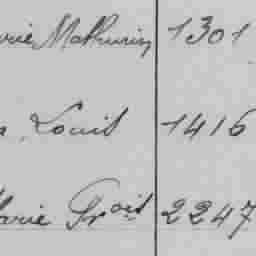 Marie Mathurin 1301
Louis 1416
Marie Frois 2247